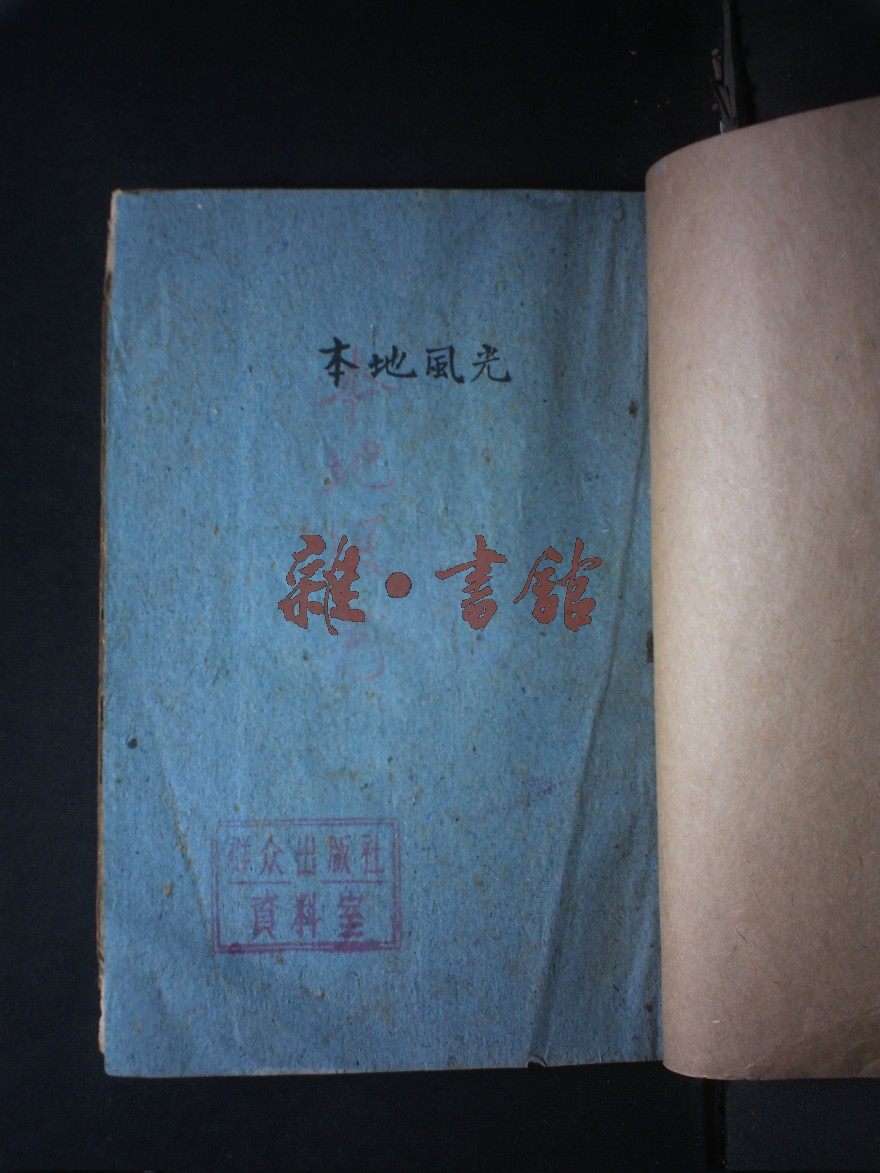 本地風光
本地風光
雜·書館
群众出版社
資料室